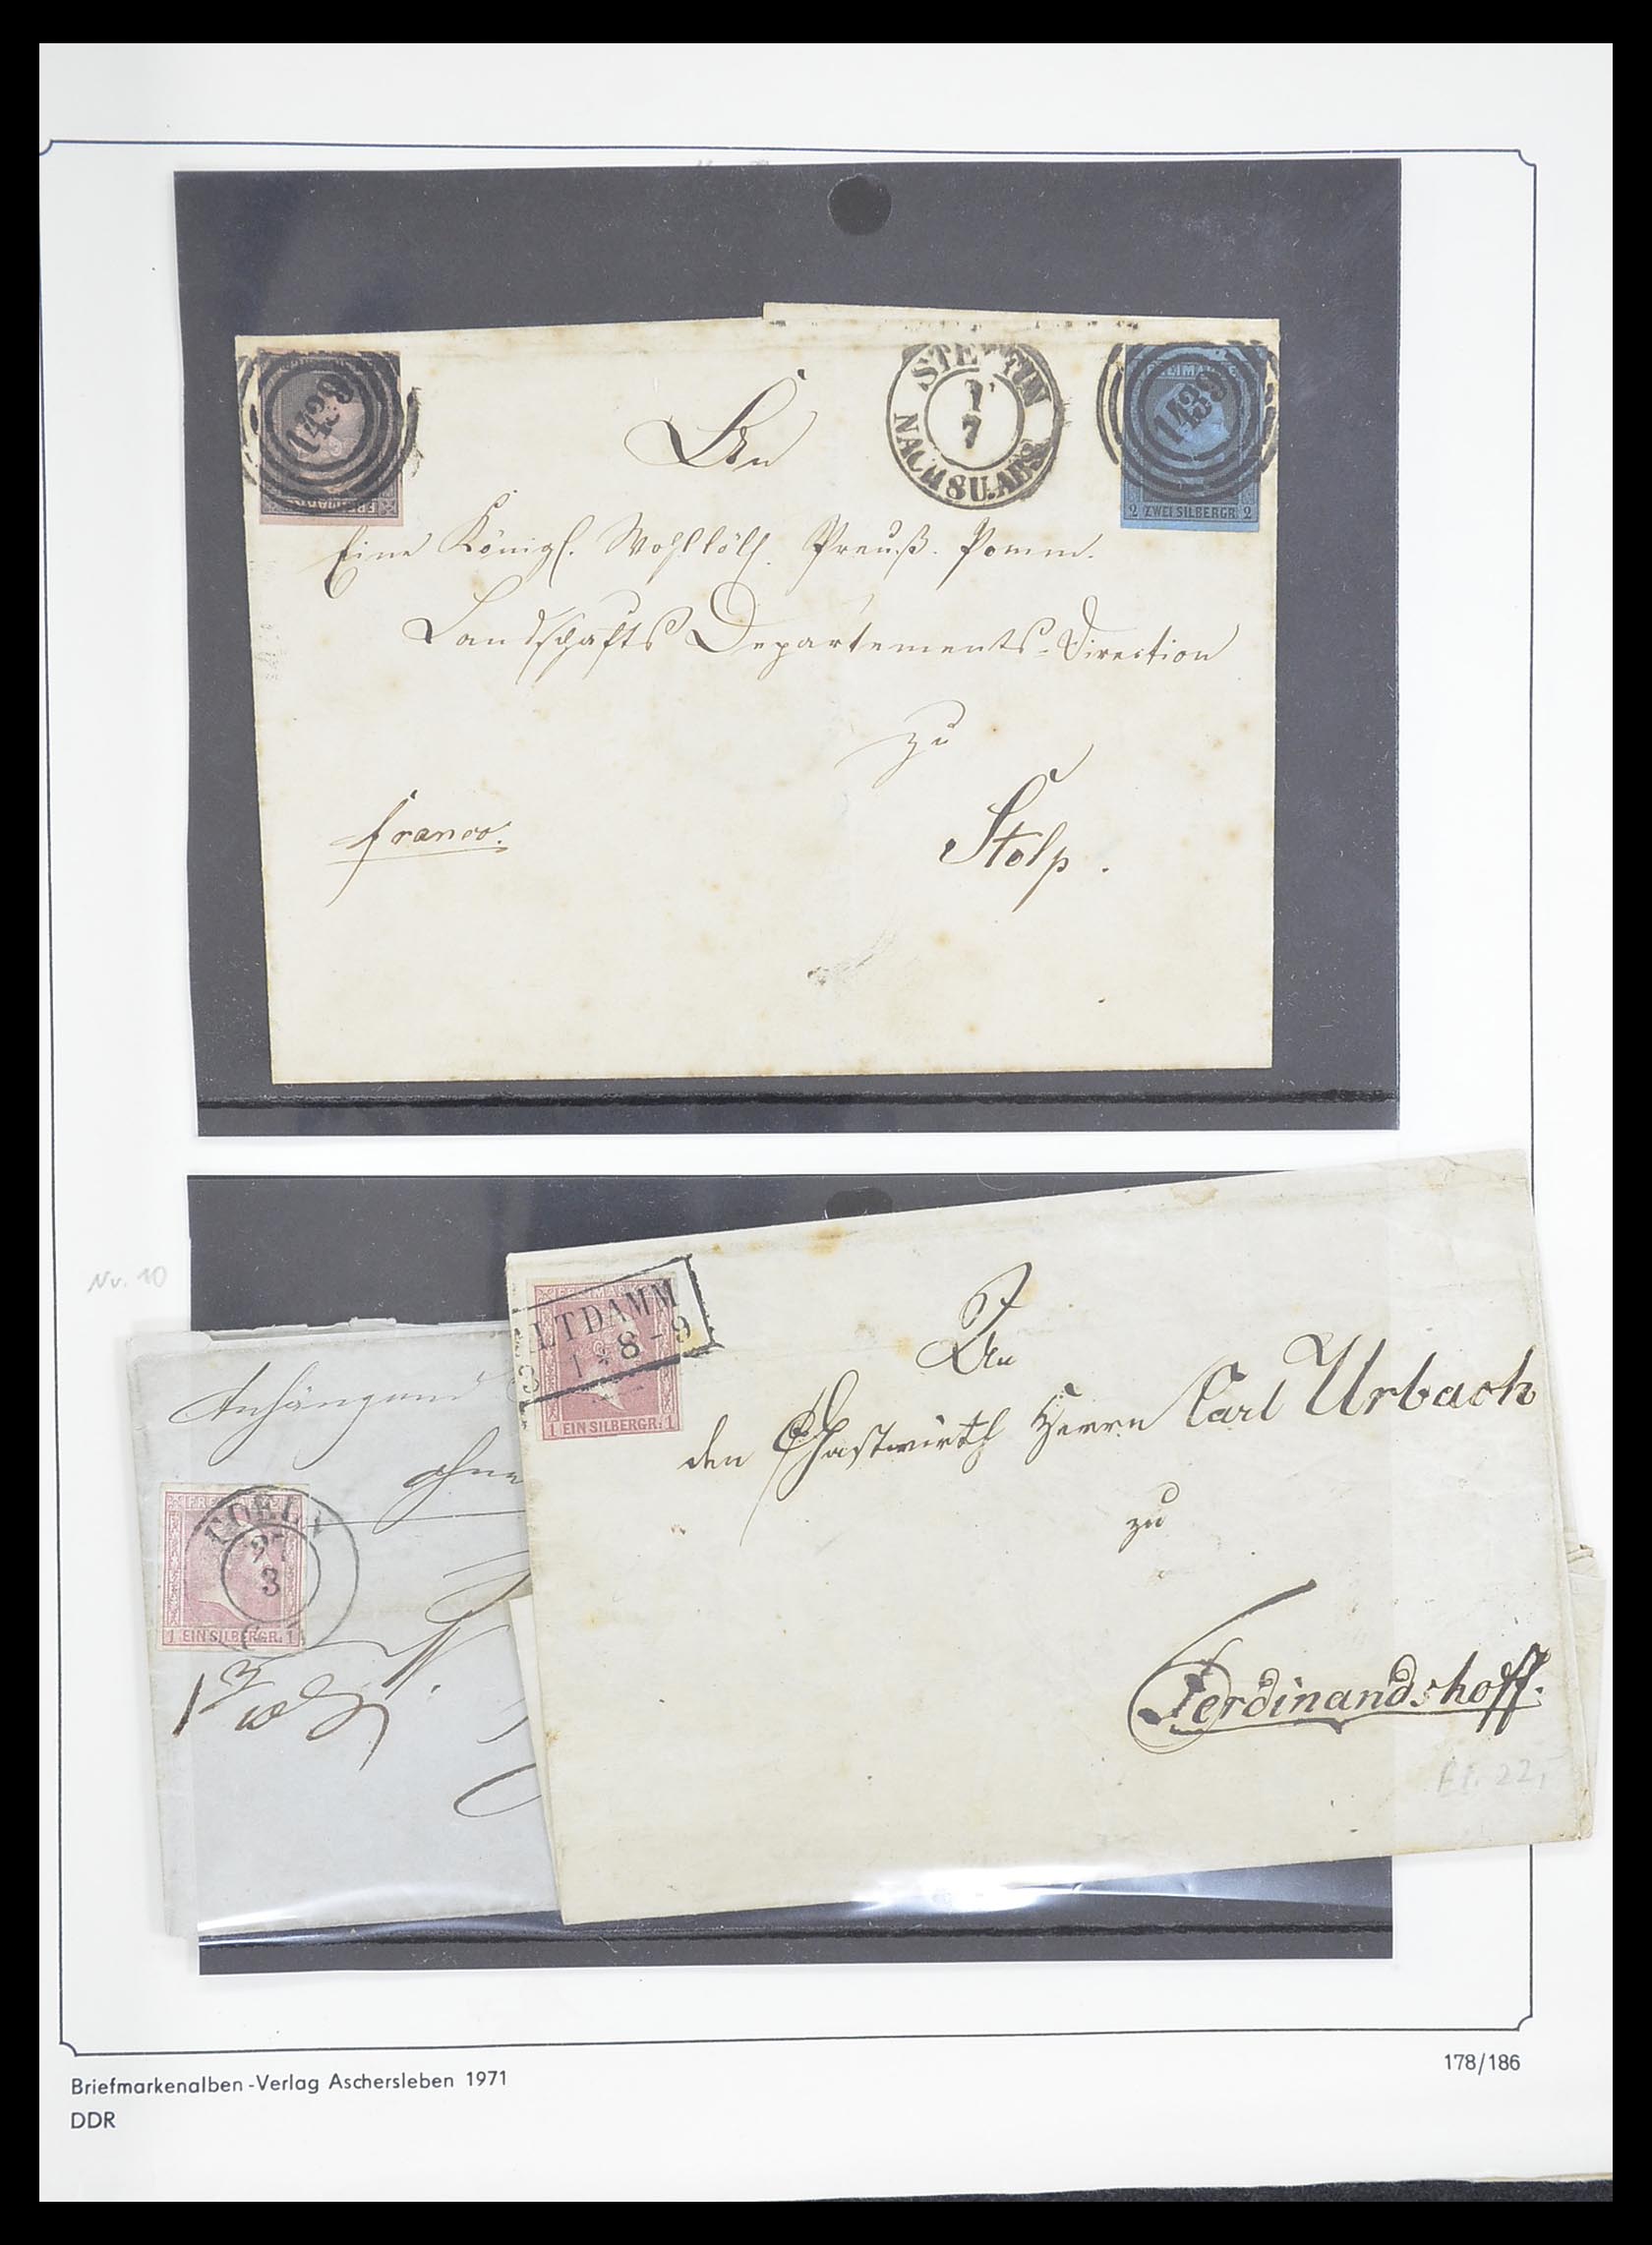 1439
STETTIN
7
NACH 8 U. ABS.
FREIMARKE
1439
2 ZWEI SILBERGR. 2
An
Eine Königl. Wohllöbl. Preuß. Pomm.
Landschafts Departements-Direction
zu
franco.
Stolp.
Nr. 10
FREIMARKE
ALTDAMM
1 * 8-9
1 EIN SILBERGR. 1
An
den Gastwirth Herrn Carl Urbach
zu
Ferdinandshoff.
Ef. 22,
Anhängend
ohne
27
3
1 EIN SILBERGR. 1
Briefmarkenalben-Verlag Aschersleben 1971
DDR
178/186